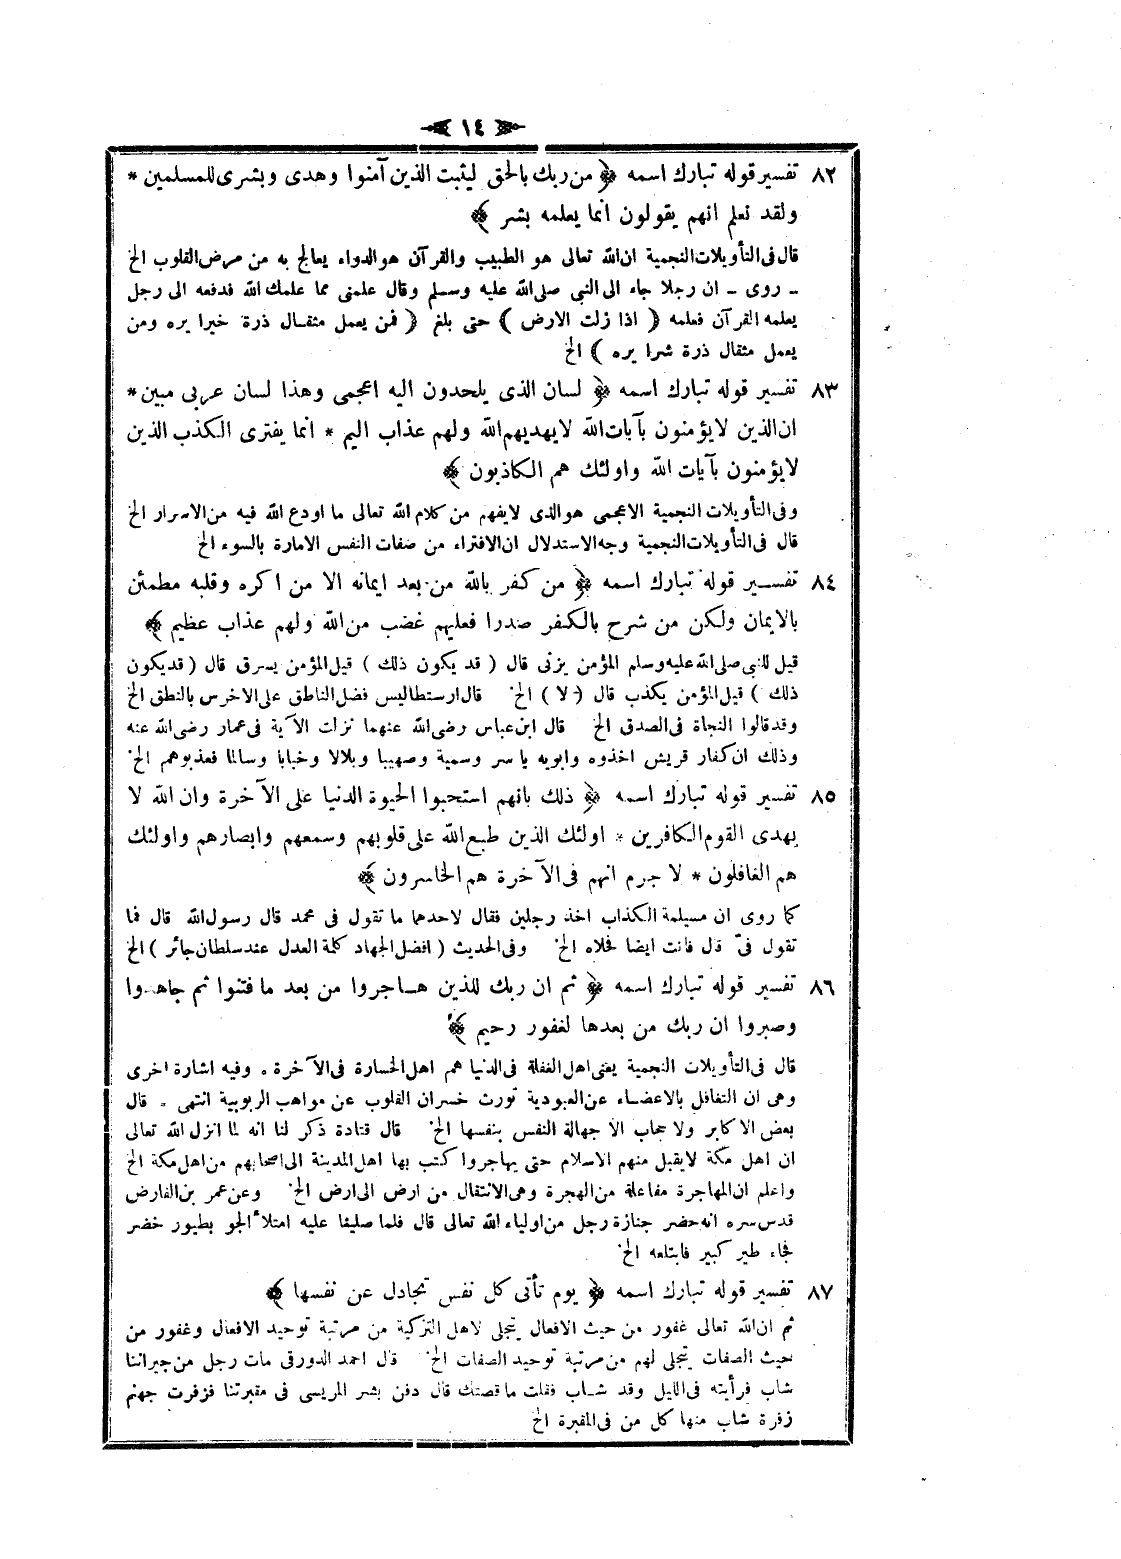 ١٤
٨٢ تفسير قوله تبارك اسمه ﴿ من ربك بالحق ليثبت الذين آمنوا وهدى وبشرى للمسلمين *
ولقد نعلم انهم يقولون انما يعلمه بشر ﴾
قال فى التأويلات النجمية ان الله تعالى هو الطبيب والقرآن هو الدواء يعالج به من مرض القلوب الخ
ـ روى ـ ان رجلا جاء الى النبى صلى الله عليه وسلم وقال علمنى مما علمك الله فدفعه الى رجل
يعلمه القرآن فعلمه ( اذا زلت الارض ) حتى بلغ ( فمن يعمل مثقال ذرة خيرا يره ومن
يعمل مثقال ذرة شرا يره ) الخ
٨٣ تفسير قوله تبارك اسمه ﴿ لسان الذى يلحدون اليه اعجمى وهذا لسان عربى مبين *
ان الذين لا يؤمنون بآيات الله لا يهديهم الله ولهم عذاب اليم * انما يفترى الكذب الذين
لا يؤمنون بآيات الله واولئك هم الكاذبون ﴾
وفى التأويلات النجمية الاعجمى هو الذى لا يفهم من كلام الله تعالى ما اودع الله فيه من الاسرار الخ
قال فى التأويلات النجمية وجه الاستدلال ان الافتراء من صفات النفس الامارة بالسوء الخ
٨٤ تفسير قوله تبارك اسمه ﴿ من كفر بالله من بعد ايمانه الا من اكره وقلبه مطمئن
بالايمان ولكن من شرح بالكفر صدرا فعليهم غضب من الله ولهم عذاب عظيم ﴾
قيل للنبى صلى الله عليه وسلم المؤمن يزنى قال ( قد يكون ذلك ) قيل المؤمن يسرق قال ( قد يكون
ذلك ) قيل المؤمن يكذب قال ( لا ) الخ قال ارستطاليس فضل الناطق على الاخرس بالنطق الخ
وقد قالوا النجاة فى الصدق الخ قال ابن عباس رضى الله عنهما نزلت الآية فى عمار رضى الله عنه
وذلك ان كفار قريش اخذوه وابويه ياسر وسمية وصهيبا وبلالا وخبابا وسالما فعذبوهم الخ
٨٥ تفسير قوله تبارك اسمه ﴿ ذلك بانهم استحبوا الحيوة الدنيا على الآخرة وان الله لا
يهدى القوم الكافرين * اولئك الذين طبع الله على قلوبهم وسمعهم وابصارهم واولئك
هم الغافلون * لا جرم انهم فى الآخرة هم الخاسرون ﴾
كما روى ان مسيلمة الكذاب اخذ رجلين فقال لاحدهما ما تقول فى محمد قال رسول الله قال فما
تقول فىّ قال فانت ايضا فخلاه الخ وفى الحديث ( افضل الجهاد كلمة العدل عند سلطان جائر ) الخ
٨٦ تفسير قوله تبارك اسمه ﴿ ثم ان ربك للذين هاجروا من بعد ما فتنوا ثم جاهدوا
وصبروا ان ربك من بعدها لغفور رحيم ﴾
قال فى التأويلات النجمية يعنى اهل الغفلة فى الدنيا هم اهل الخسارة فى الآخرة . وفيه اشارة اخرى
وهى ان التغافل بالاعضاء عن العبودية تورث خسران القلوب عن مواهب الربوبية انتهى . قال
بعض الاكابر ولا حجاب الا جهالة النفس بنفسها الخ قال قتادة ذكر لنا انه لما انزل الله تعالى
ان اهل مكة لا يقبل منهم الاسلام حتى يهاجروا كتب بها اهل المدينة الى اصحابهم من اهل مكة الخ
واعلم ان المهاجرة مفاعلة من الهجرة وهى الانتقال من ارض الى ارض الخ وعن عمر بن الفارض
قدس سره انه حضر جنازة رجل من اولياء الله تعالى قال فلما صلينا عليه امتلأ الجو بطيور خضر
فجاء طير كبير فابتلعه الخ
٨٧ تفسير قوله تبارك اسمه ﴿ يوم تأتى كل نفس تجادل عن نفسها ﴾
ثم ان الله تعالى غفور من حيث الافعال يتجلى لاهل التزكية من مرتبة توحيد الافعال وغفور من
حيث الصفات يتجلى لهم من مرتبة توحيد الصفات الخ قال احمد الدورقى مات رجل من جيراننا
شاب فرأيته فى الليل وقد شاب فقلت ما قصتك قال دفن بشر المريسى فى مقبرتنا فزفرت جهنم
زفرة شاب منها كل من فى المقبرة الخ